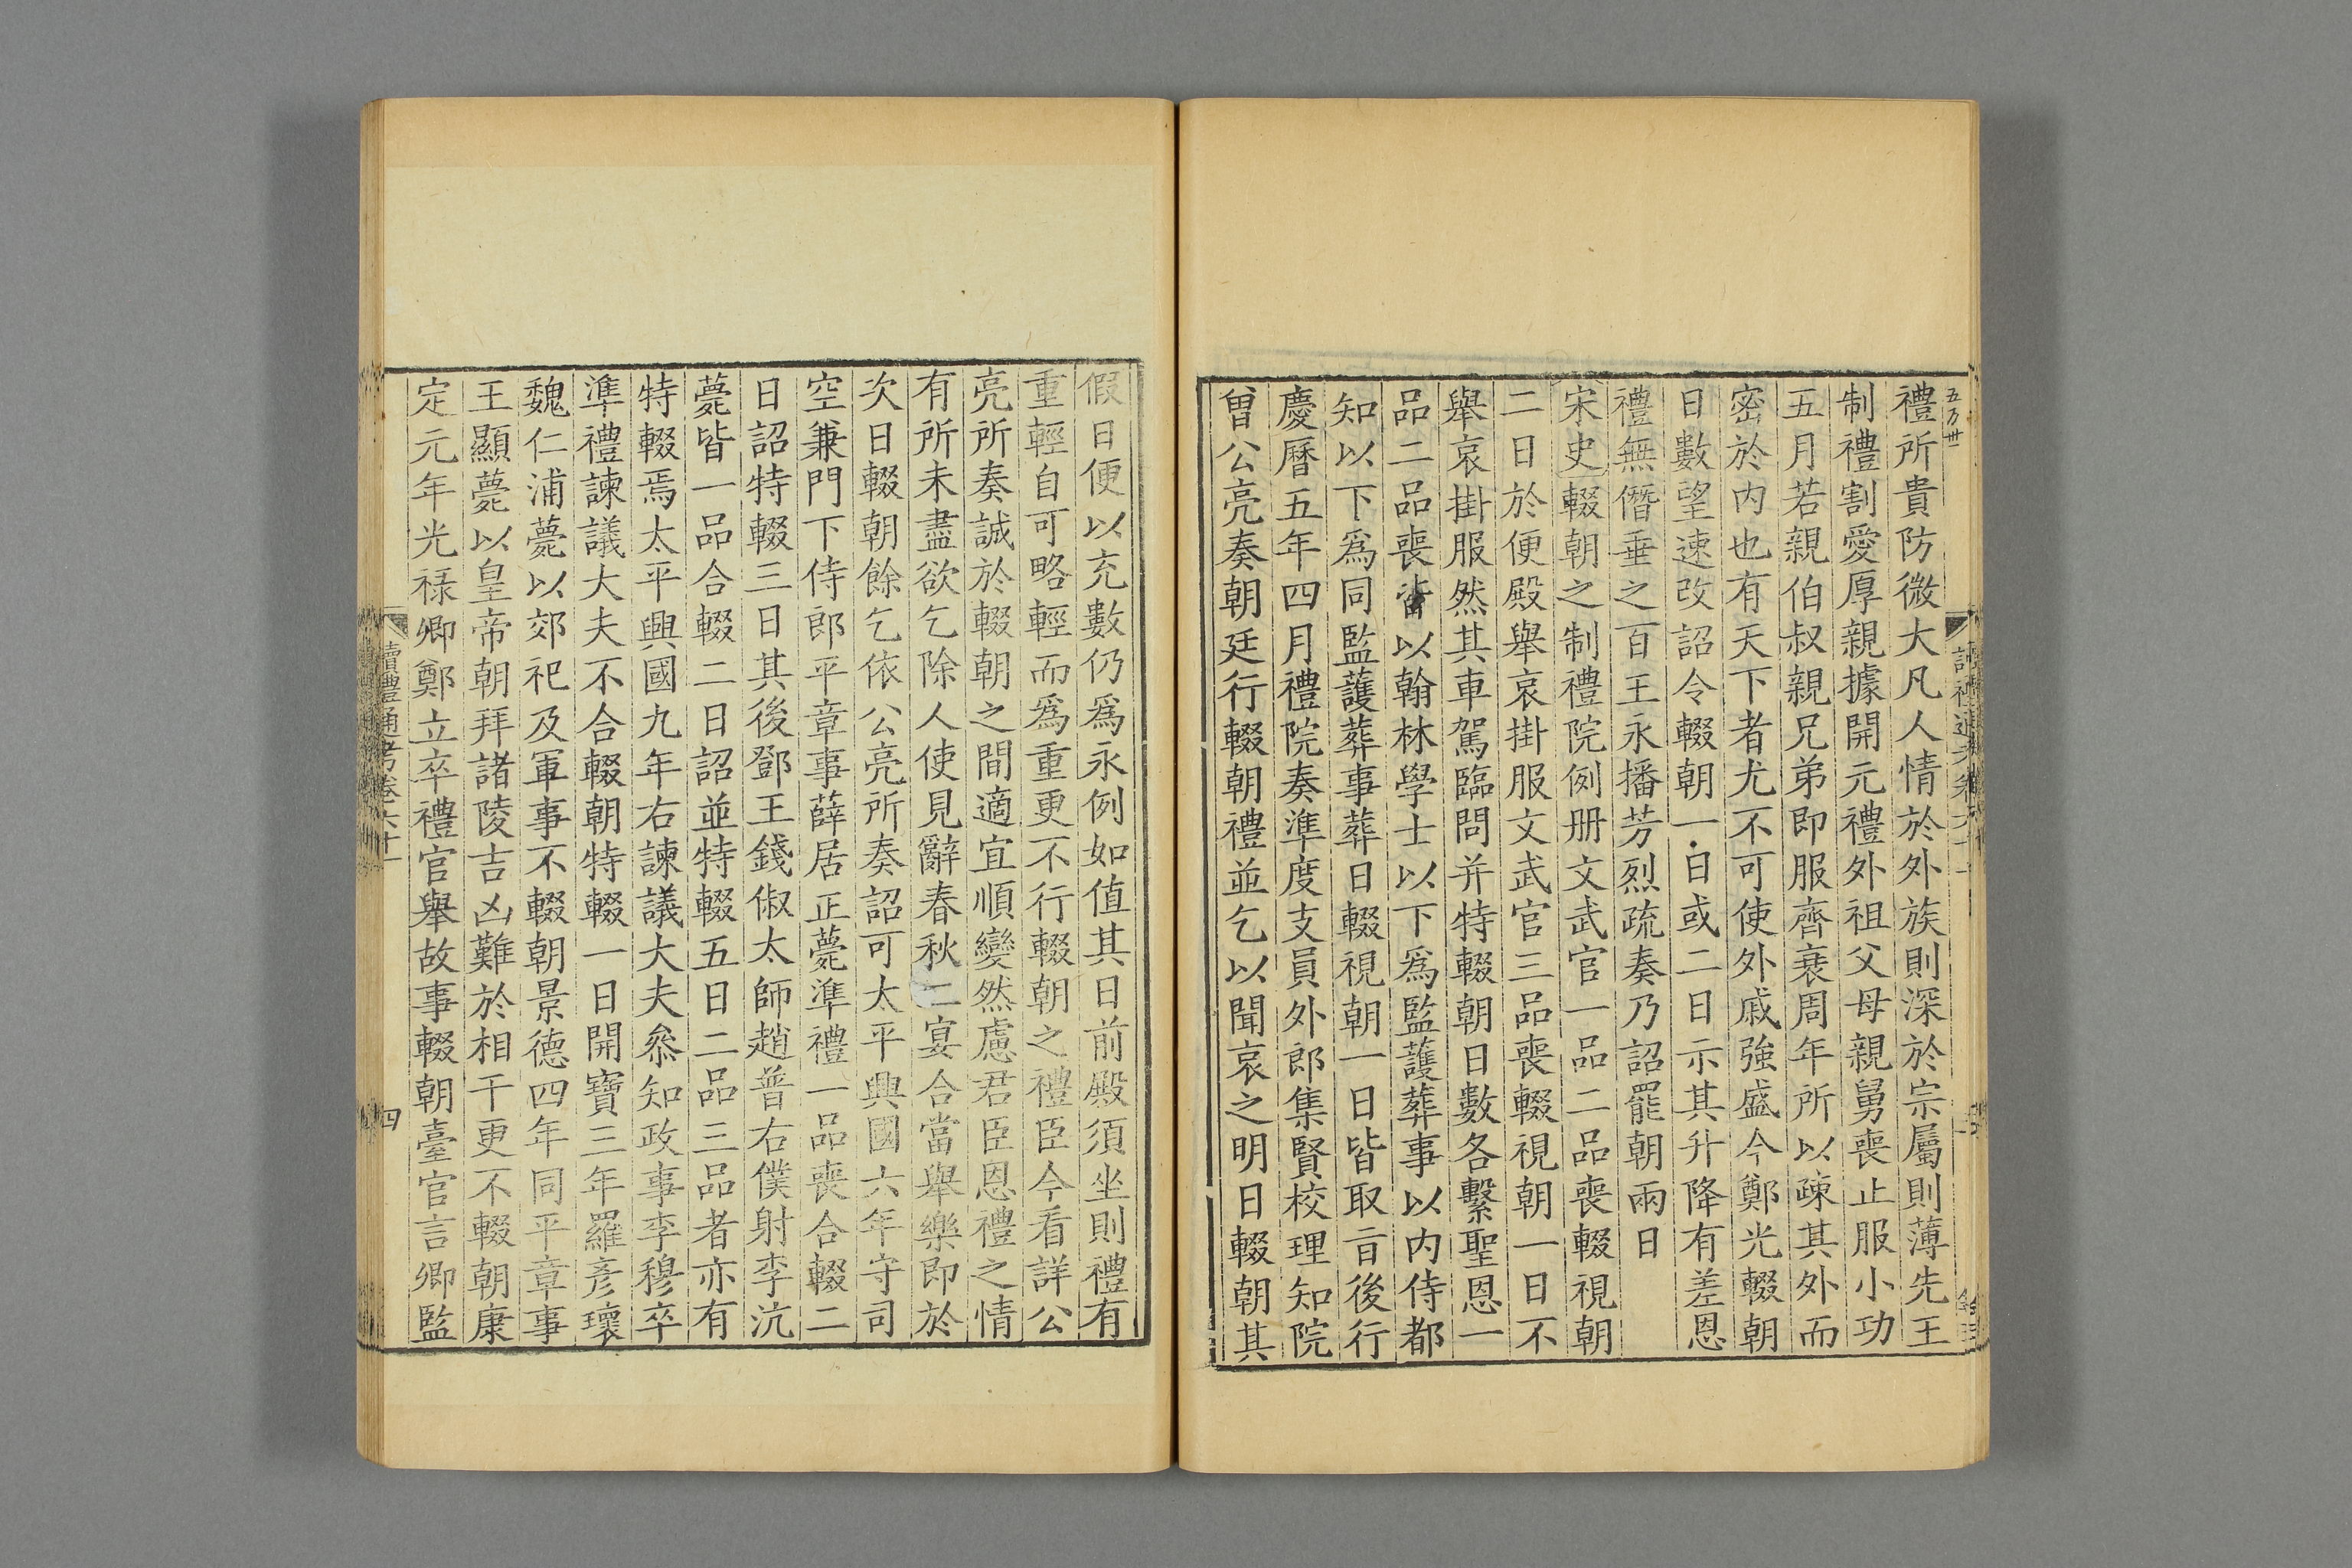 五百卅一
禮所貴防微大凡人情於外族則深於宗屬則薄先王
制禮割愛厚親據開元禮外祖父母親舅喪止服小功
五月若親伯叔親兄弟即服齊衰周年所以疎其外而
密於内也有天下者尤不可使外戚強盛今鄭光輟朝
日數望速改詔令輟朝一日或二日示其升降有差恩
禮無僭垂之百王永播芳烈疏奏乃詔罷朝兩日
宋史輟朝之制禮院例册文武官一品二品喪輟視朝
二日於便殿舉哀掛服文武官三品喪輟視朝一日不
舉哀掛服然其車駕臨問并特輟朝日數各繫聖恩一
品二品喪皆以翰林學士以下爲監護葬事以内侍都
知以下爲同監護葬事葬日輟視朝一日皆取旨後行
慶曆五年四月禮院奏準度支員外郎集賢校理知院
曾公亮奏朝廷行輟朝禮並乞以聞哀之明日輟朝其
假日便以充數仍爲永例如值其日前殿須坐則禮有
重輕自可略輕而爲重更不行輟朝之禮臣今看詳公
亮所奏誠於輟朝之間適宜順變然慮君臣恩禮之情
有所未盡欲乞除人使見辭春秋二宴合當舉樂即於
次日輟朝餘乞依公亮所奏詔可太平興國六年守司
空兼門下侍郎平章事薛居正薨準禮一品喪合輟二
日詔特輟三日其後鄧王錢俶太師趙普右僕射李沆
薨皆一品合輟二日詔並特輟五日二品三品者亦有
特輟焉太平興國九年右諫議大夫叅知政事李穆卒
準禮諫議大夫不合輟朝特輟一日開寶三年羅彥瓌
魏仁浦薨以郊祀及軍事不輟朝景德四年同平章事
王顯薨以皇帝朝拜諸陵吉凶難於相干更不輟朝康
定元年光祿卿鄭立卒禮官舉故事輟朝臺官言卿監
讀禮通考卷六十一
四